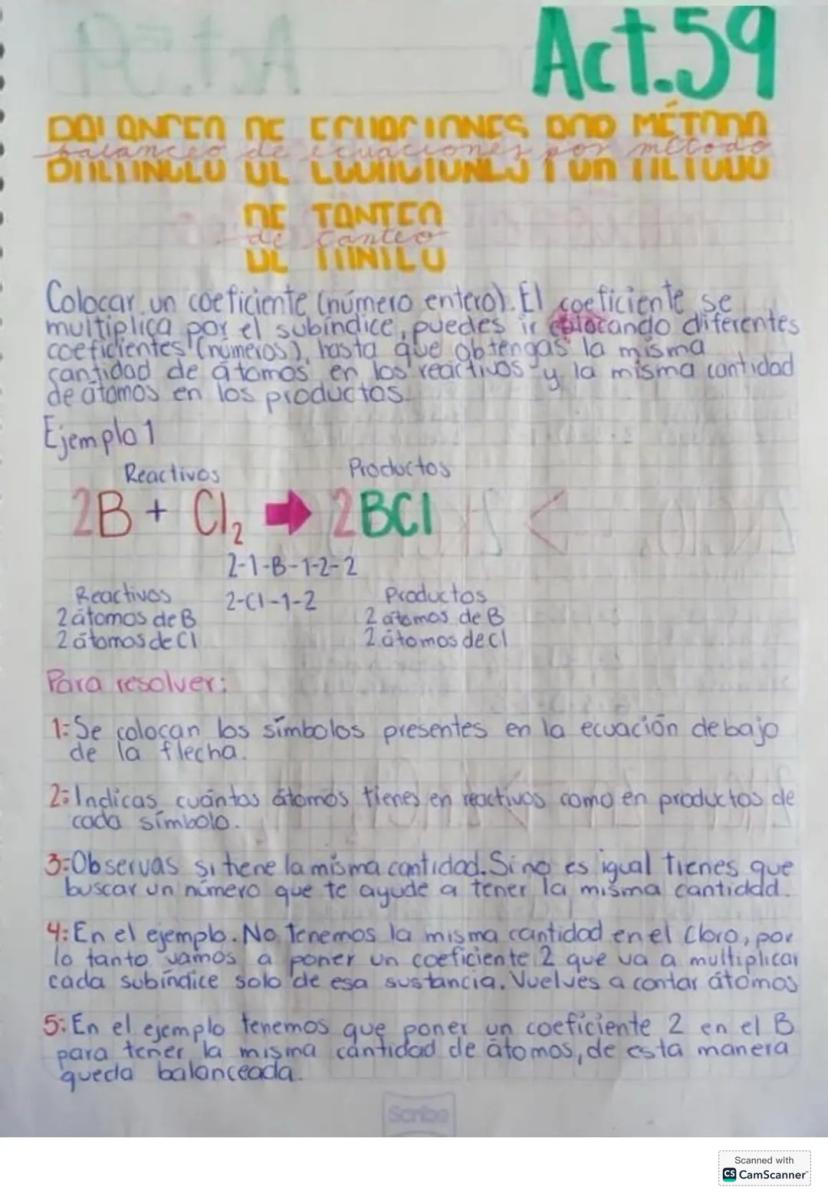 Act.59
BALANCEO DE ECUACIONES POR MÉTODO
balanceo de ecuaciones por método
DE TANTEO
de tanteo
Colocar un coeficiente (número entero). El coeficiente se
multiplica por el subíndice, puedes ir colocando diferentes
coeficientes (números), hasta que obtengas la misma
cantidad de átomos en los reactivos y la misma cantidad
de átomos en los productos.
Ejemplo 1
Reactivos Productos
2B + Cl₂ ➡ 2BCl
2-1-B-1-2-2
Reactivos 2-Cl-1-2 Productos
2 átomos de B 2 átomos de B
2 átomos de Cl 2 átomos de Cl
Para resolver:
1: Se colocan los símbolos presentes en la ecuación debajo
de la flecha.
2: Indicas cuántos átomos tienes en reactivos como en productos de
cada símbolo.
3: Observas si tiene la misma cantidad. Si no es igual tienes que
buscar un número que te ayude a tener la misma cantidad.
4: En el ejemplo. No tenemos la misma cantidad en el Cloro, por
lo tanto vamos a poner un coeficiente 2 que va a multiplicar
cada subíndice solo de esa sustancia. Vuelves a contar átomos
5: En el ejemplo tenemos que poner un coeficiente 2 en el B
para tener la misma cantidad de átomos, de esta manera
queda balanceada.
Scribe
Scanned with
CS CamScanner